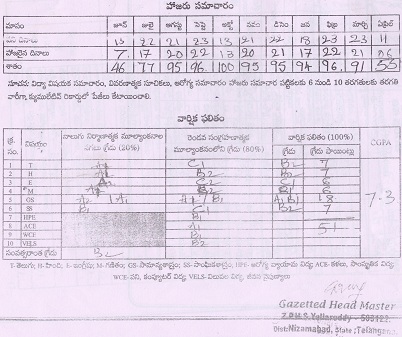 హాజరు సమాచారం
మాసం జూన్ జులై ఆగస్టు సెప్టె అక్టో నవం డిసెం జన ఫిబ్ర మార్చి ఏప్రిల్
పని దినాలు 15 22 21 23 13 21 22 18 23 23 11
హాజరైన దినాలు 7 17 20 22 13 20 21 17 22 21 06
శాతం 46 77 95 96 100 95 95 94 96 91 55
సూచన: విద్యా విషయక సమాచారం, వివరణాత్మక సూచికలు, ఆరోగ్య సమాచారం హాజరు సమాచార పట్టికలకు 6 నుండి 10 తరగతులకు తరగతి
వారీగా క్యుములేటివ్ రికార్డులో పేజీలు కేటాయించాలి.
వార్షిక ఫలితం
క్ర. సం. విషయం నాలుగు నిర్మాణాత్మక మూల్యాంకనాల సగటు గ్రేడు (20%) రెండవ సంగ్రహణాత్మక మూల్యాంకనంలోని గ్రేడు (80%) వార్షిక ఫలితం (100%) గ్రేడు గ్రేడు పాయింట్లు CGPA
1 T C1 B2 7
2 H B2 B2 7
3 E C2 C1 6
4 M B2 B1 6
5 GS A2 A1 B1 18
6 SS B1 C1 B2 7
7 HPE
8 ACE A1 51
9 WCE B1
10 VELS B2
7.3
సంవత్సరాంత గ్రేడు B2
T-తెలుగు; H-హిందీ; E- ఇంగ్లీషు; M-గణితం; GS-సామాన్యశాస్త్రం; SS-సాంఘికశాస్త్రం; HPE- ఆరోగ్య వ్యాయామ విద్య ACE-కళలు, సాంస్కృతిక విద్య
WCE-పని, కంప్యూటర్ విద్య VELS-విలువల విద్య, జీవన నైపుణ్యాలు
Gazetted Head Master
Z.P.H.S.Yellareddy - 503122.
Dist:Nizamabad, State :Telangana.